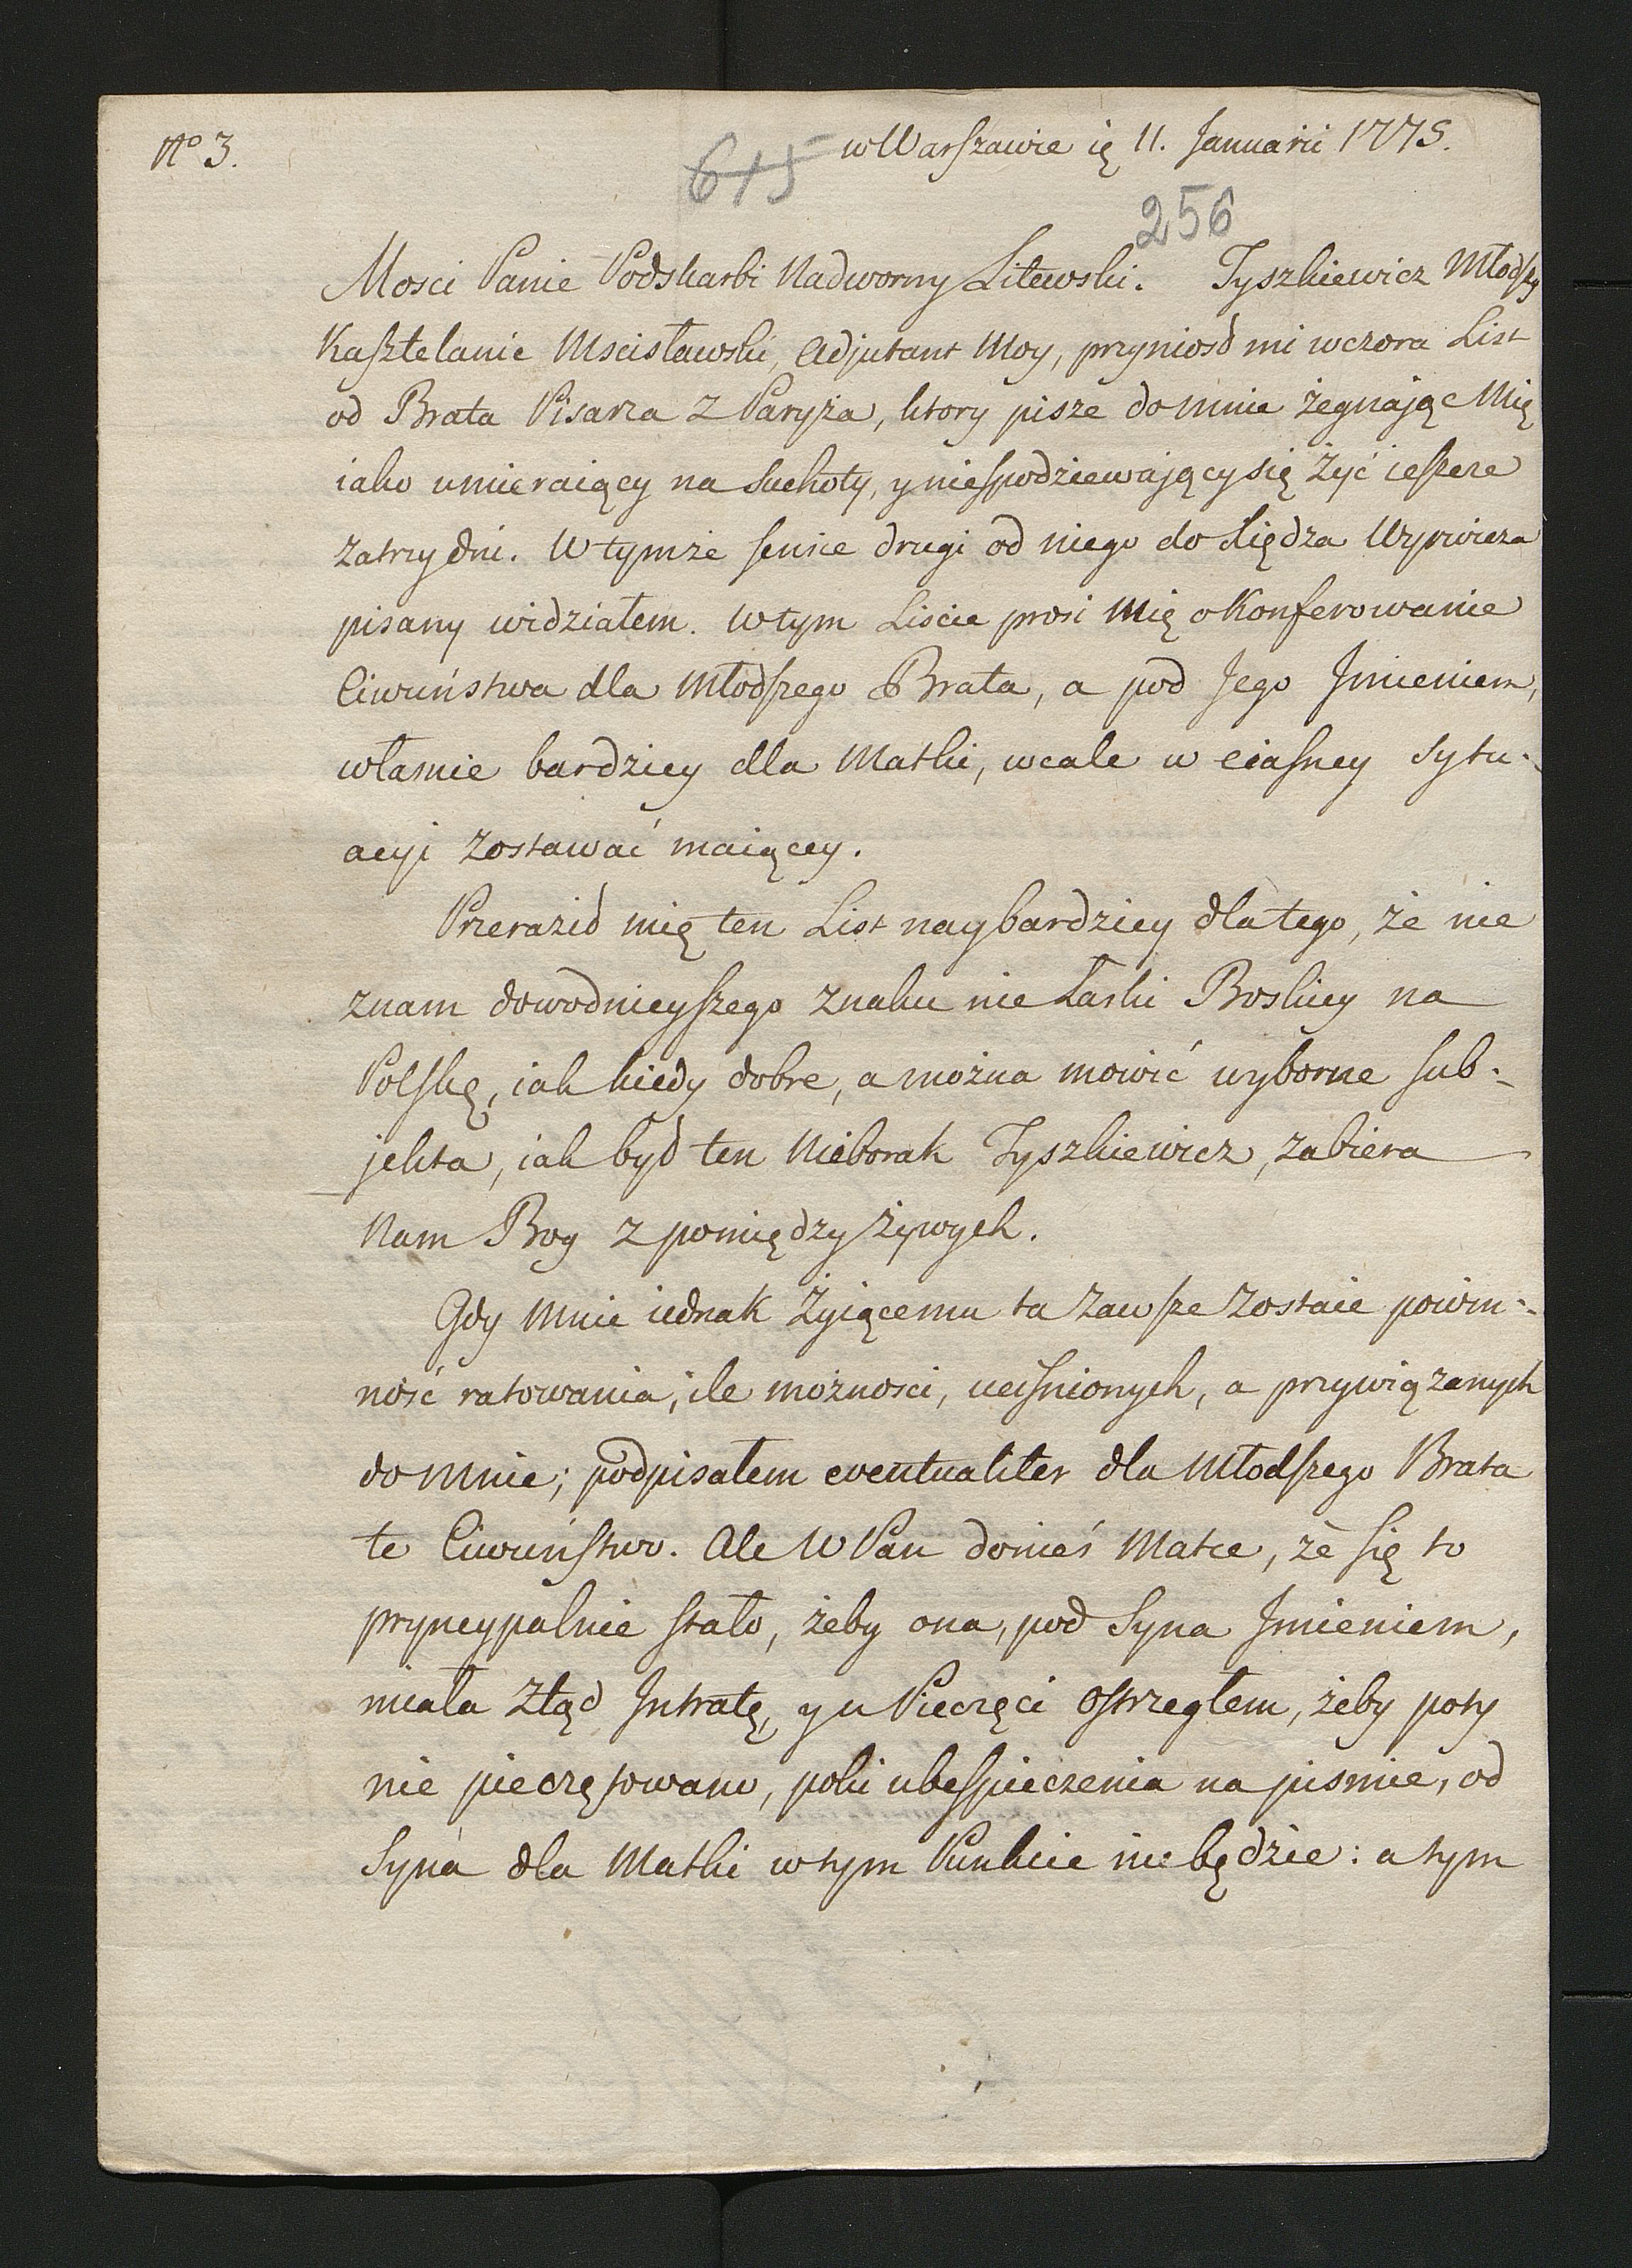 No 3.
w Warszawie ię 11. Januarii 1775.
615
256
Mosci Panie Podskarbi Nadworny Litewski. Tyszkiewicz Młodszy
Kasztelanic Mscisławski, Adjutant Moy, przyniosł mi wczora List
od Brata Pisarza z Paryża, ktory pisze do mnie żegnając Mię
iako umieraiący na Suchoty, y niespodziewający się żyć ieszcze
za trzy dni. W tymże sensie drugi od niego do Xiędza Wyrwicza
pisany widziałem. W tym Liscie prosi Mię o Konferowanie
Ciwuństwa dla Młodszego Brata, a pod Jego Jmieniem,
własnie bardziey dla Matki, wcale w ciasney Sytu-
acyi zostawać maiącey.
Przeraził mię ten List naybardziey dlatego, że nie
znam dowodnieyszego znaku nie Łaski Boskiey na
Polskę, iak kiedy dobre, a można mowić wyborne sub-
jekta, iak był ten Nieborak Tyszkiewicz, zabiera
Nam Bog z pomiędzy żywych.
Gdy Mnie iednak Żyiącemu ta zawsze zostaie powin-
ność ratowania, ile możności, ucisnionych, a przywiązanych
do Mnie; podpisałem eventualiter dla Młodszego Brata
te Ciwuństwo. Ale W Pan donieś Matce, że się to
pryncypalnie stało, żeby ona, pod Syna Jmieniem,
miała ztąd Jntratę, y u Pieczęci ostrzegłem, żeby poty
nie pieczętowano, poki ubespieczenia na pismie, od
Syna dla Matki w tym Punkcie nie będzie: a tym